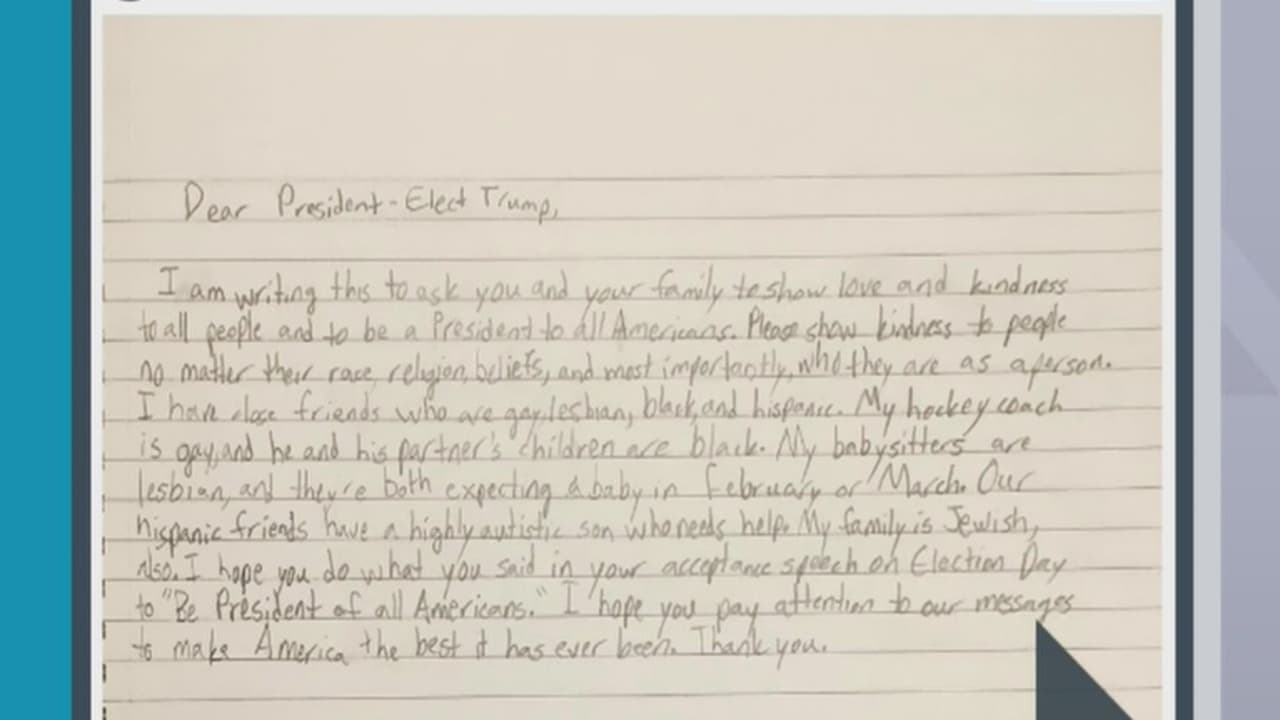 Dear President-Elect Trump,
I am writing this to ask you and your family to show love and kindness
to all people and to be a President to all Americans. Please show kindness to people
no matter their race, religion, beliefs, and most importantly, who they are as a person.
I have close friends who are gay, lesbian, black, and hispanic. My hockey coach
is gay, and he and his partner's children are black. My babysitters are
lesbian, and they're both expecting a baby in February or March. Our
hispanic friends have a highly autistic son who needs help. My family is Jewish,
also. I hope you do what you said in your acceptance speech on Election Day
to "Be President of all Americans." I hope you pay attention to our messages
to make America the best it has ever been. Thank you.